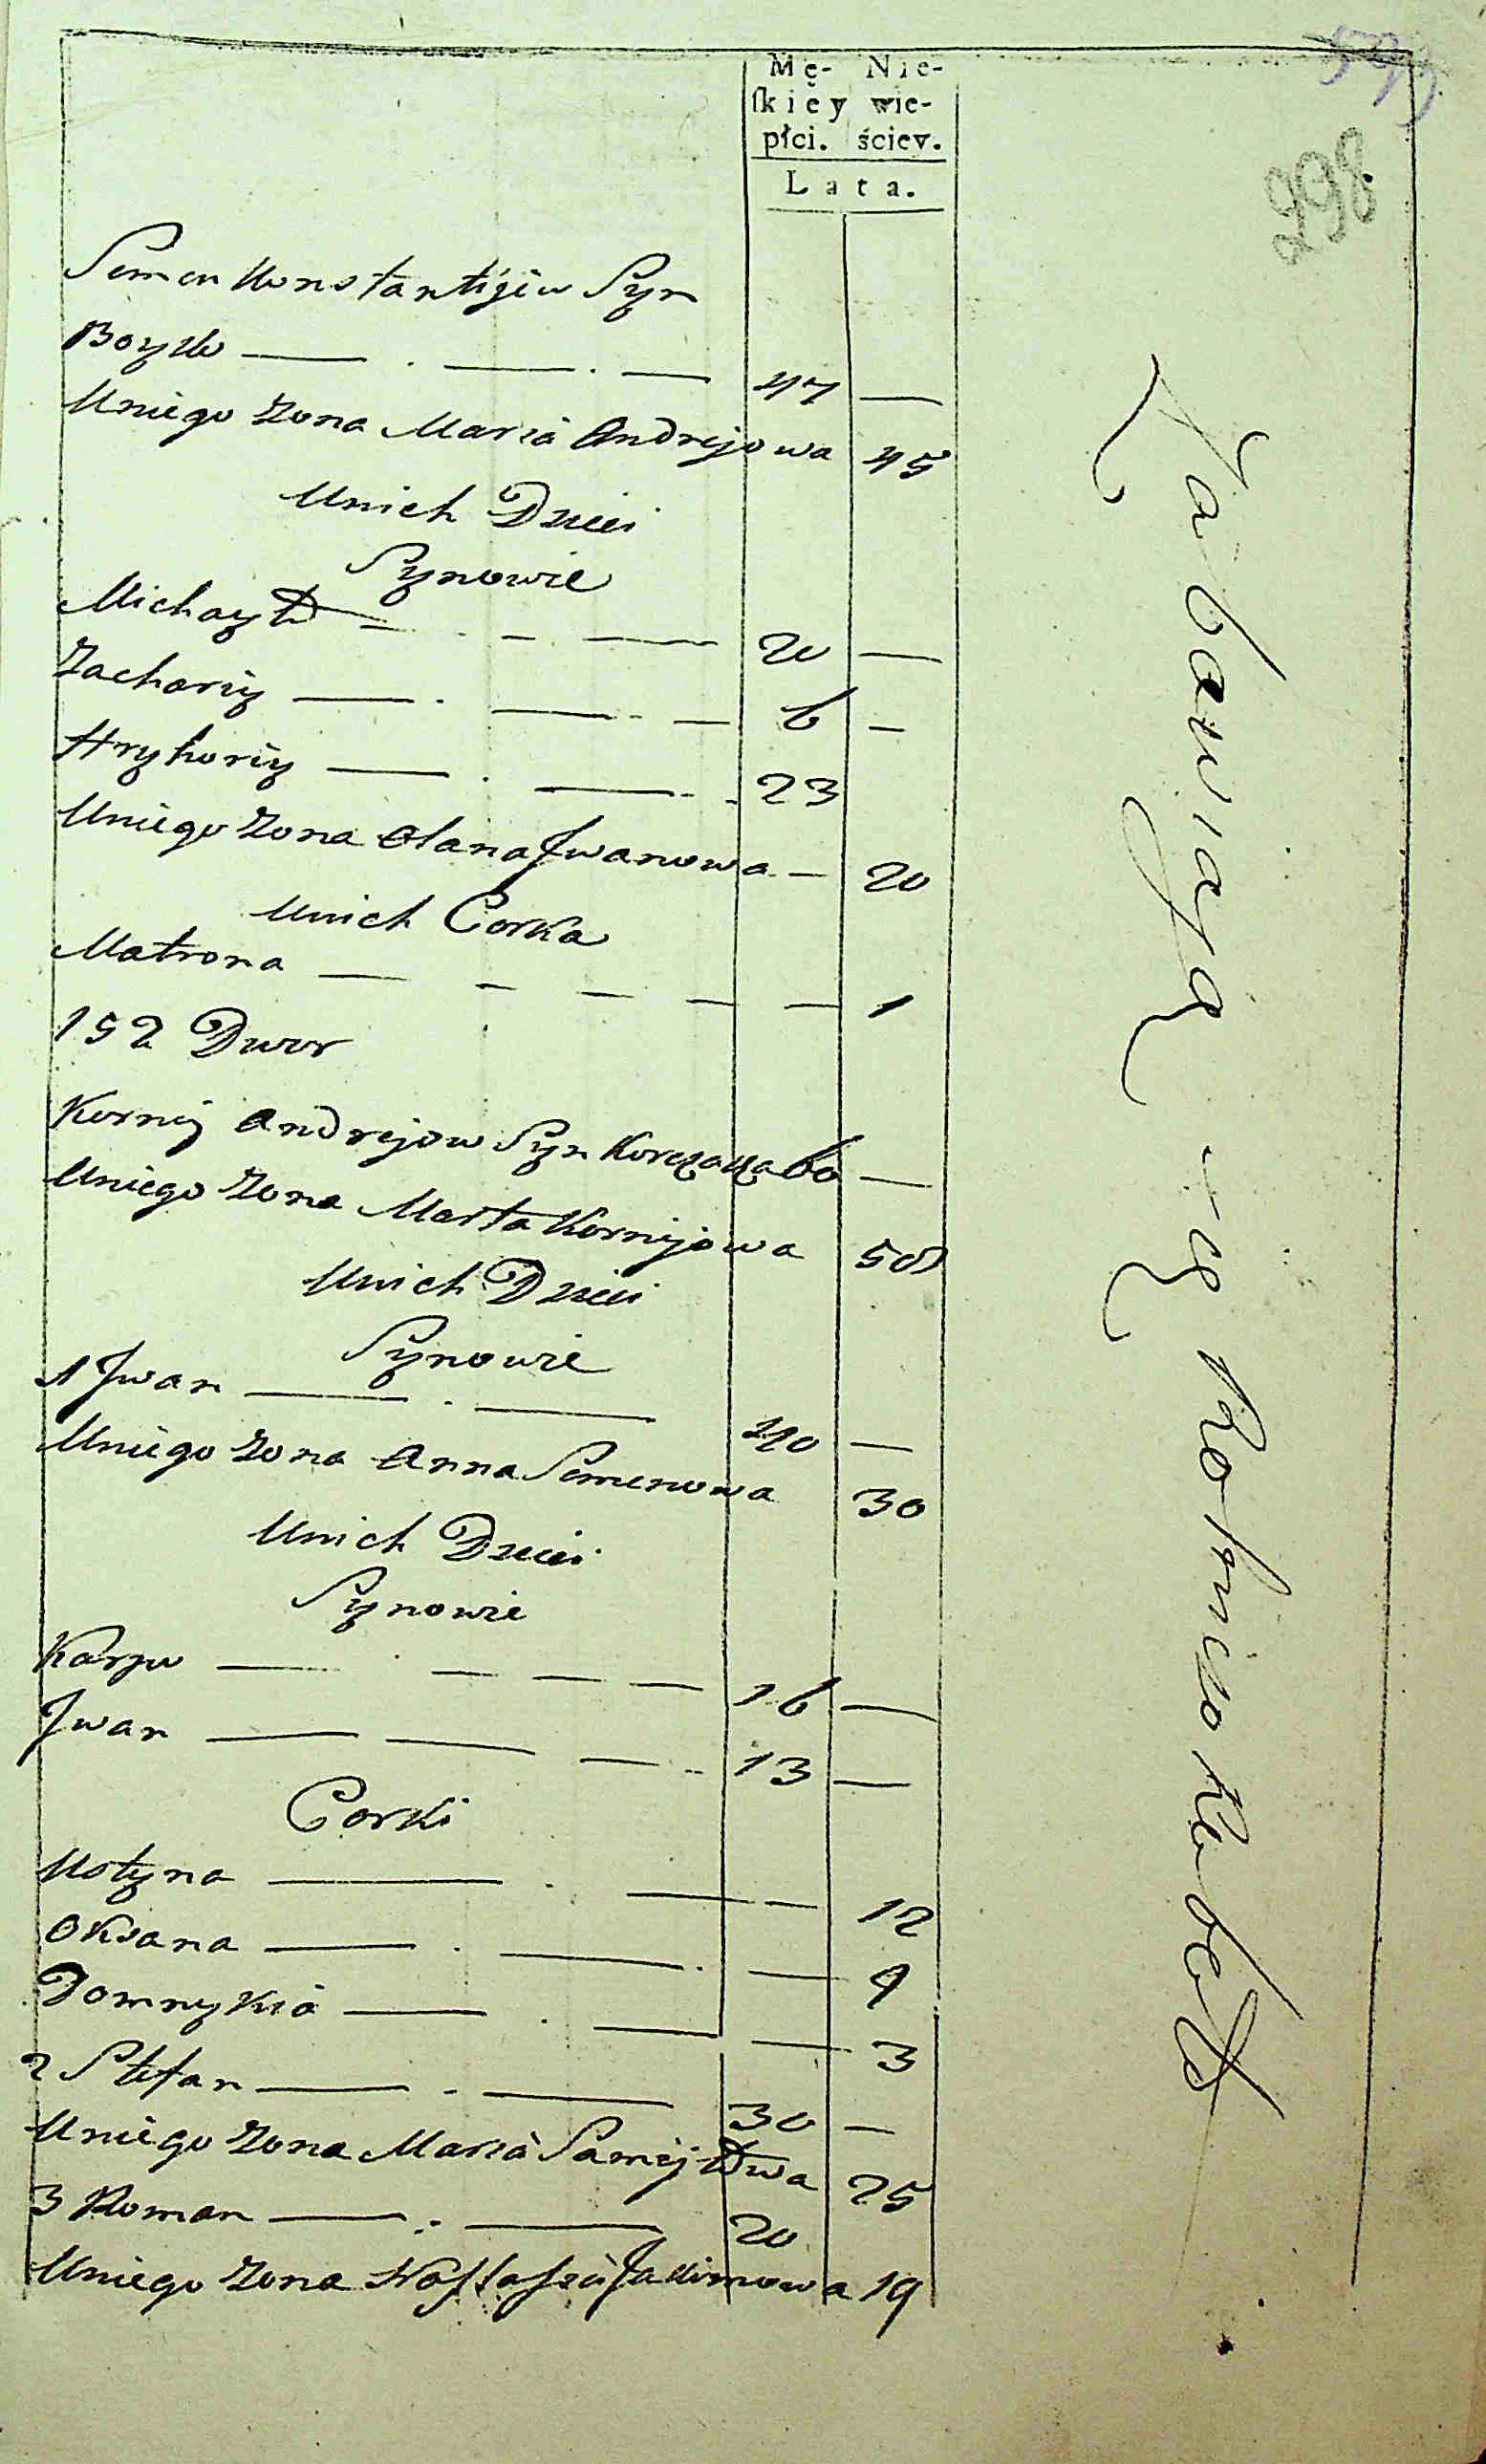 298
Mę- Nie-
ſkiey wie-
płci. ściey.
Lata.
Semen Konstantijiw Syn
Boyko — . — . — 47 —
Uniego Zona Maria Andrejowa 45
Unich Dzieci
Synowie
Michayło — . — — 20 —
Zachariy — . — - — 6 —
Hryhoriy — . — - - 23
Uniego Zona Olana Jwanowa — 20
Unich Corka
Matrona — — — — — 1
152 Dwor
Korniy Andrejow Syn 60 —
Uniego Zona Marta Kornijowa 50
Unich Dzieci
Synowie
1 Jwan — . — 40 —
Uniego Zona Anna Semenowa 30
Unich Dzieci
Synowie
Karpo — . — — — 16 —
Jwan — — — - 13 —
Corki
Ustyna — . — — 12
Oksana — . — . — 9
Domnykia — . — — 3
2 Stefan — . — 30 —
Uniego Zona Maria Samijłowa 25
3 Roman — . — 20
Uniego Zona Nastasia Jakimowa 19
Zabawiaią się Rolniczo Robotą